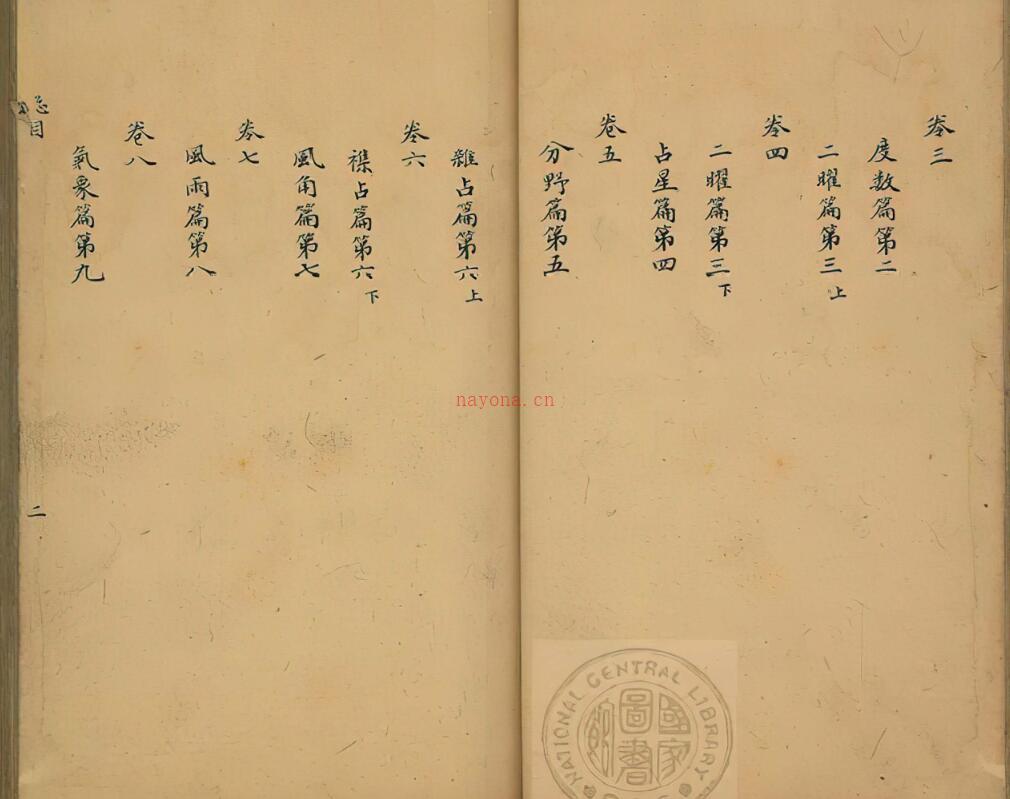 卷三
度数篇第二
二曜篇第三上
卷四
二曜篇第三下
占星篇第四
卷五
分野篇第五
雜占篇第六上
卷六
襍占篇第六下
風角篇第七
卷七
風雨篇第八
卷八
氣象篇第九
總目
二
nayona.cn
NATIONAL CENTRAL LIBRARY
國家圖書館